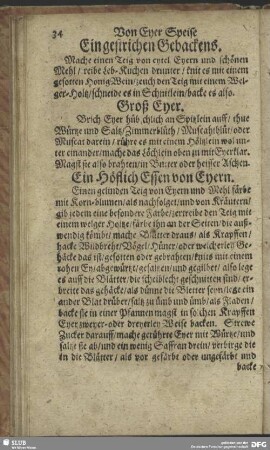 34 Von Eyer Speise
Ein gestrichen Gebackens.
Mache einen Teig von eytel Eyern und schönen
Mehl / reibe Leb-Kuchen drunter / knit es mit einem
gesotten Honig Wein / zeuch den Teig mit einem Wel-
ger-Holtz / schneide es in Schnitlein / backe es also.
Groß Eyer.
Brich Eyer hübschlich an Spitzlein auff / thue
Würtze und Saltz / Zimmerblüth / Muscatblüt / oder
Muscat darein / rührs mit einem Höltzlein wol un-
ter einander / mache das Löchlein oben zu mit Eyerklar.
Magst sie also brahten / in Butter oder heisser Aschen.
Ein Höflich Essen von Eyern.
Einen gelinden Teig von Eyern und Mehl färbe
mit Korn-blumen / als nachfolget / und von Kräutern /
gib jedem eine besondere Farbe / zerreibe den Teig mit
einem welger Holtze / färbe ihn an der Seiten / die auß-
wendig kömbt / mache Blätter draus / als Krapffen /
hacke Wildbreht / Vögel / Hüner / oder welcherley Ge-
häcke das ist / gesotten oder gebrahten / knits mit einem
rohen Ey / abgewürtzt / gesaltzen / und gegilbet / also lege
es auff die Blätter / die scheiblicht geschnitten sind / er-
breite das gehäcke / als dünne die Bletter seyn / lege ein
ander Blat drüber / saltz zu umb und umb / als Fladen /
backe sie in einer Pfannen / magst in solchen Krapffen
Eyer zweyer- oder dreyerley Weise backen. Strewe
Zucker darauff / mache gerührte Eyer mit Würtze / und
saltze sie ab / und ein wenig Saffran drein / verbirge die
in die Blätter / als vor gefärbt oder ungefärbt und
backe
SLUB